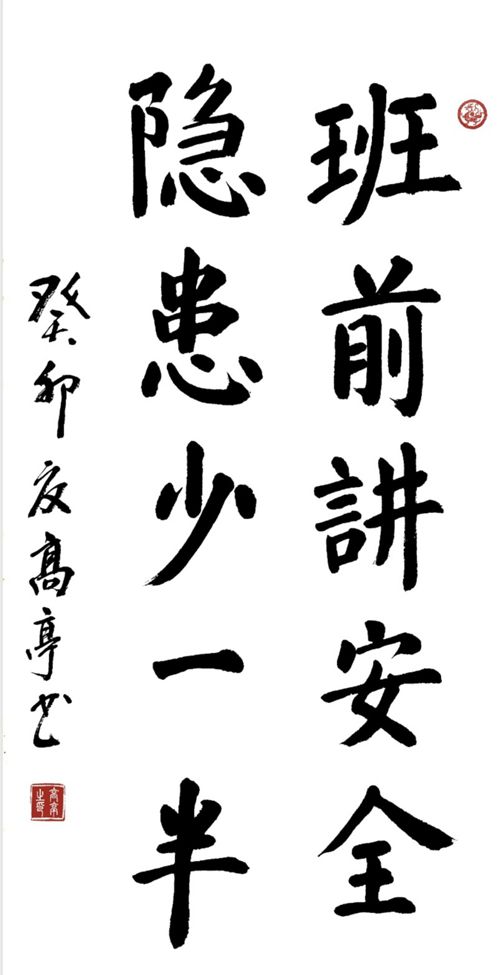 班前讲安全
隐患少一半
癸卯夏高亭书